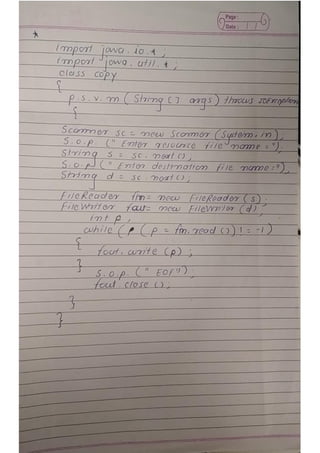 Page:
Date: / /
*
import java.io.*;
import java.util.*;
class copy
{
p.s.v.m (String [] args) throws IOException
{
Scanner sc = new Scanner (System.in);
S.o.p (" Enter resource file name : ");
String s = sc.next();
S.o.p (" Enter destination file name : ");
String d = sc.next();
FileReader fin= new FileReader (s);
FileWriter fout= new FileWriter (d);
int p;
while ( (p = fin.read ()) != -1)
{
fout.write (p);
}
S.o.p. (" EOF");
fout.close ();
}
}